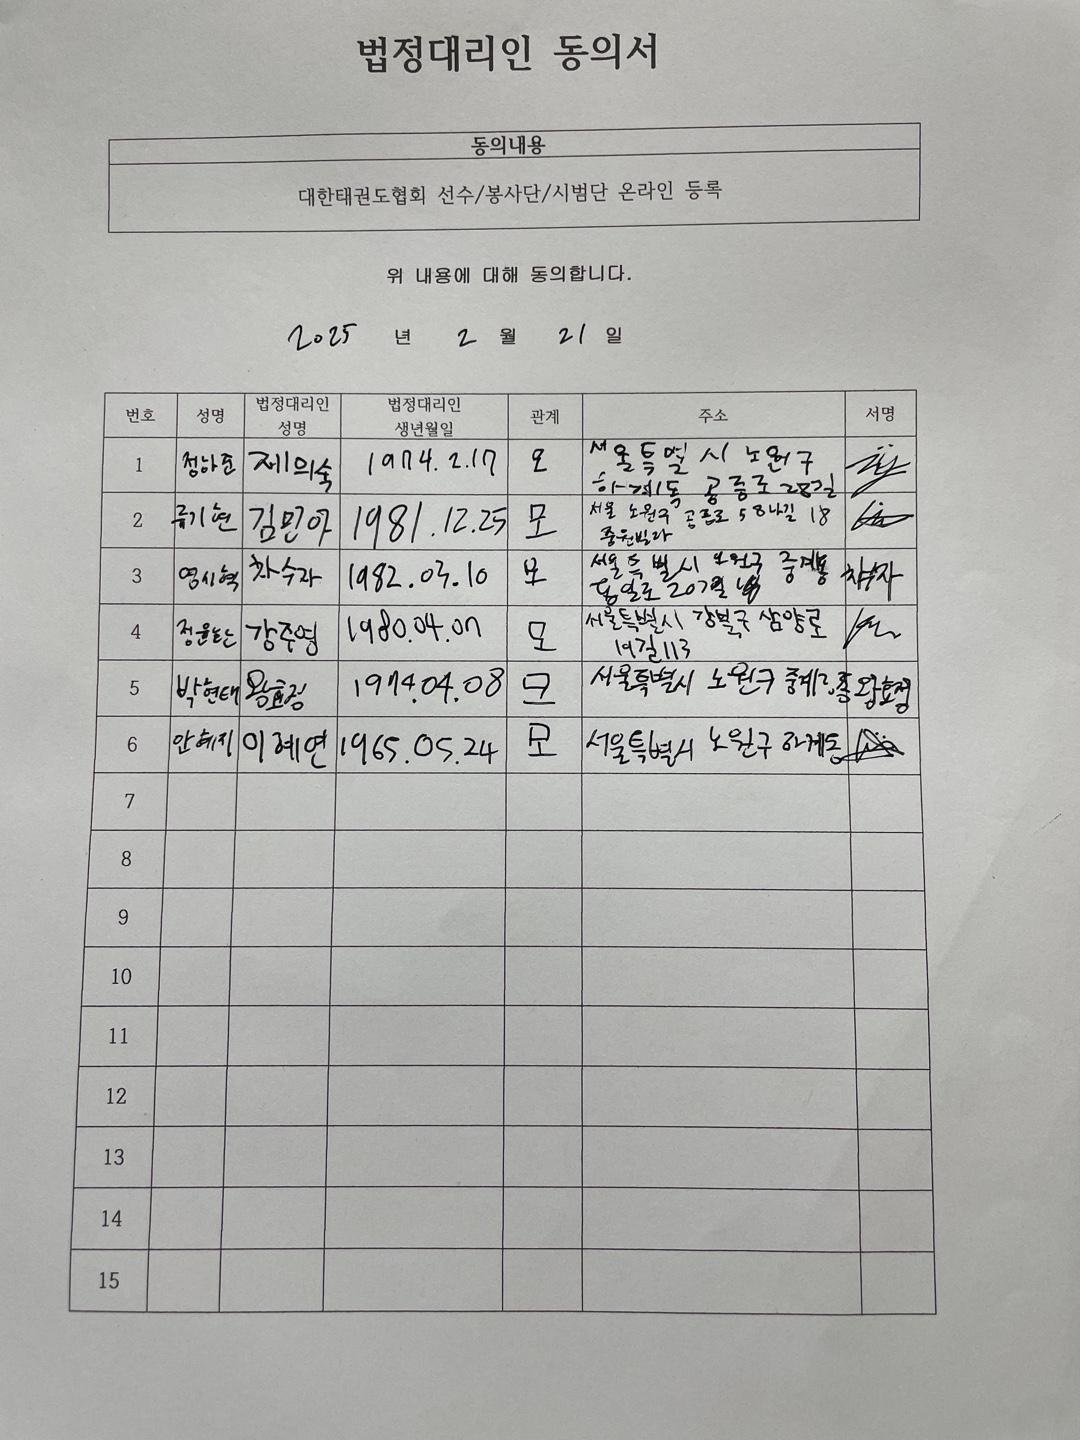 법정대리인 동의서
동의내용
대한태권도협회 선수/봉사단/시범단 온라인 등록
위 내용에 대해 동의합니다.
2025 년 2 월 21 일
번호 성명 법정대리인 성명 법정대리인 생년월일 관계 주소 서명
1 정하준 제의숙 1974.2.17 모 서울특별시 노원구
하계동 공릉로 28길
2 류기현 김민아 1981.12.25 모 서울 노원구 공릉로 58나길 18
중원빌라
3 염시혁 차수자 1982.03.10 모 서울특별시 노원구 중계동 차수자
동일로 207길
4 강주영 1980.04.07 모 서울특별시 강북구 삼양로
19길 113
5 박현태 왕효정 1974.04.08 모 서울특별시 노원구 왕효정
6 안혜지 이혜연 1965.05.24 모 서울특별시 노원구 하계동
7
8
9
10
11
12
13
14
15